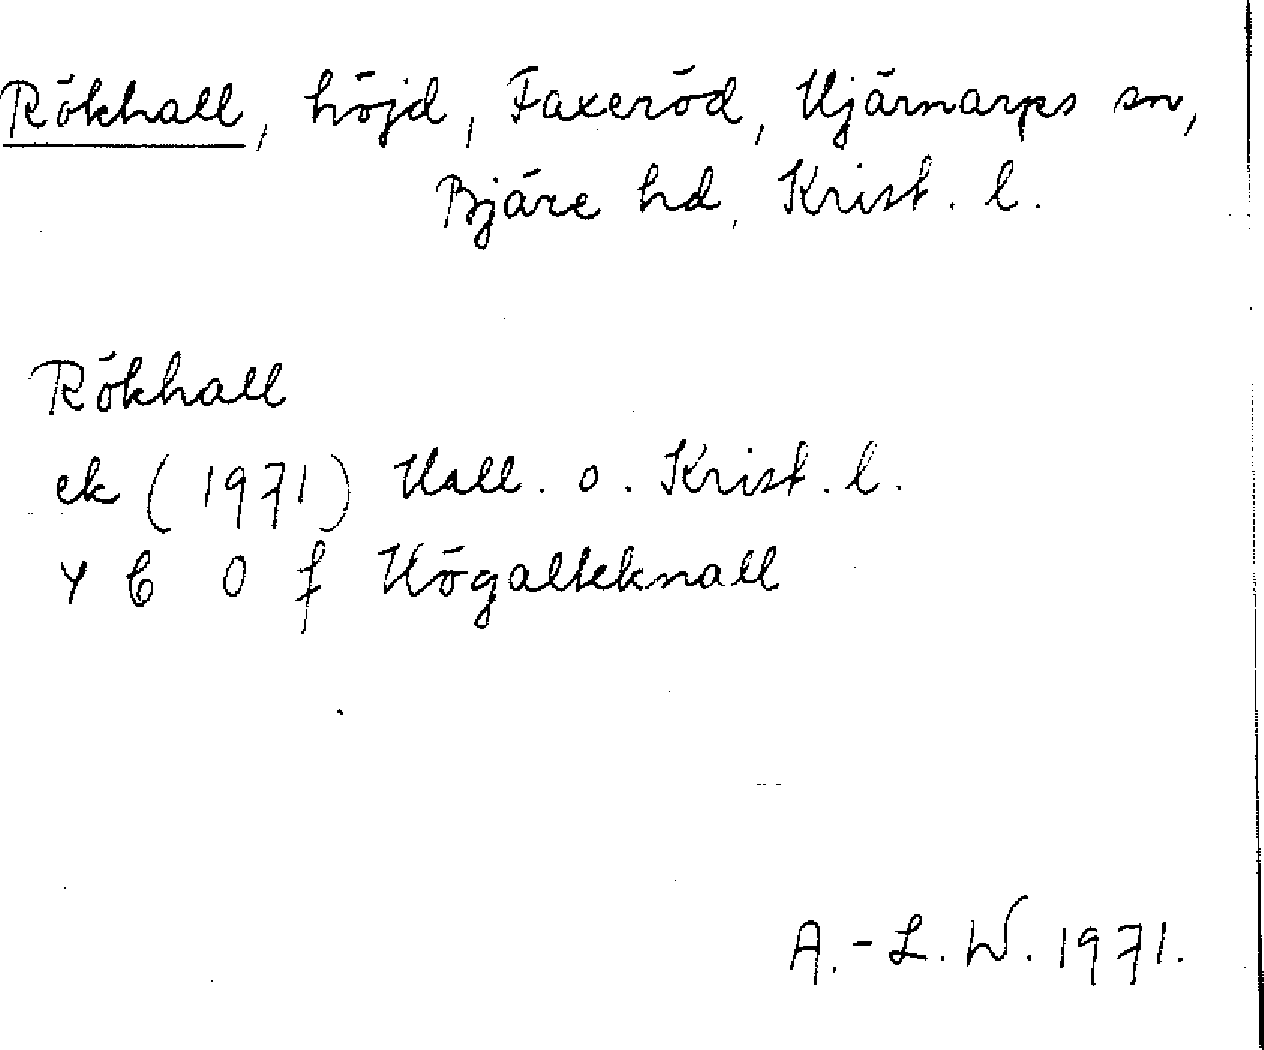 Rökhall, höjd, Faxeröd, Hjärnarps sn,
Bjäre hd, Krist. l.
Rökhall
ek (1971) Hall. o. Krist. l.
Y C O f Högalteknall
A.-L. W. 1971.